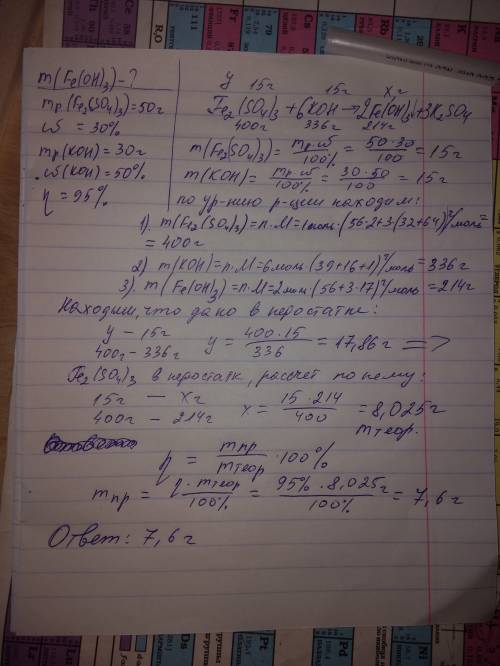 m(Fe(OH)₃) - ?
mр(Fe₂(SO₄)₃) = 50г
ω = 30%
mр(KOH) = 30г
ω(KOH) = 50%
η = 95%
y 15г 15г xг
Fe₂(SO₄)₃ + 6KOH → 2Fe(OH)₃↓ + 3K₂SO₄
400г 336г 214г
m(Fe₂(SO₄)₃) = mр·ω/100% = 50·30/100 = 15г
m(KOH) = mр·ω/100% = 30·50/100 = 15г
по ур-нию р-ции находим:
1). m(Fe₂(SO₄)₃) = n·M = 1моль·(56·2+3(32+64)г/моль =
= 400г
2) m(KOH) = n·M = 6моль·(39+16+1)г/моль = 336г
3). m(Fe(OH)₃) = n·M = 2моль·(56+3·17)г/моль = 214г
Находим, что дано в недостатке:
y – 15г
400г – 336г y = 400·15/336 = 17,86г =>
Fe₂(SO₄)₃ в недостатк, рассчет по нему:
15г — xг
400г – 214г x = 15·214/400 = 8,025г
mтеор.
η = mпр/mтеор · 100%
mпр = η·mтеор/100% = 95%·8,025г/100% = 7,6г
Ответ: 7,6г
R₂O
111
Fr
Cs
Rb
Pt
Ni
Ds